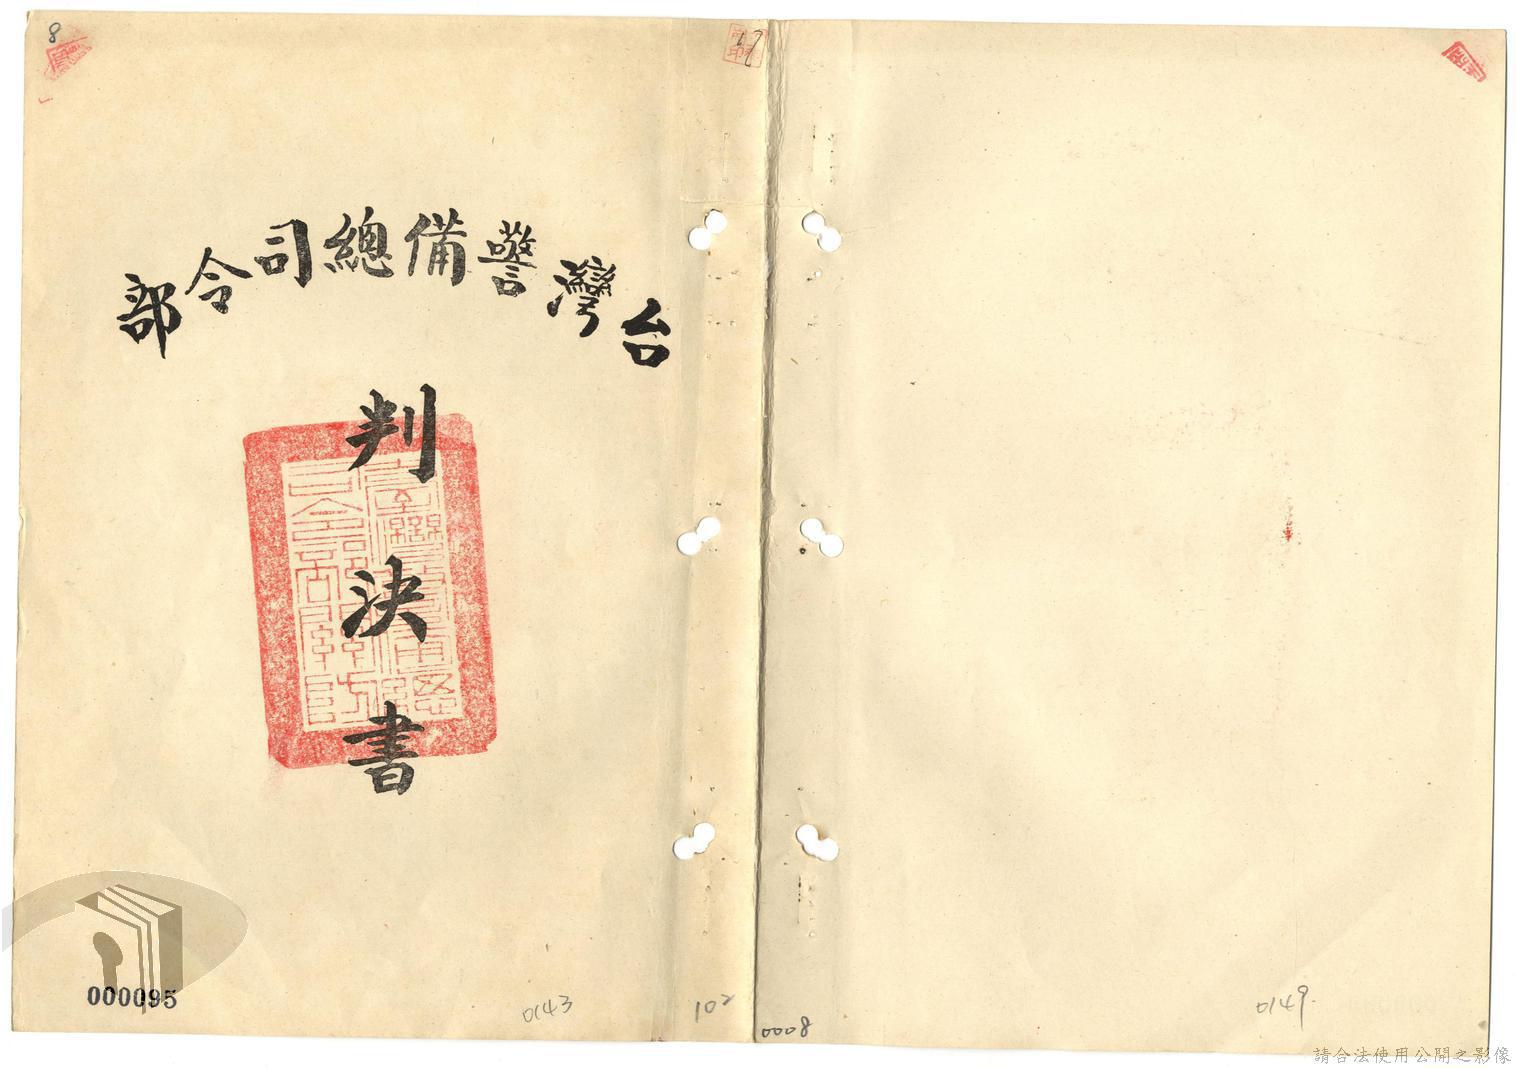 8
台灣警備總司令部
判決書
000095
0143
102
0008
0149.
請合法使用公開之影像